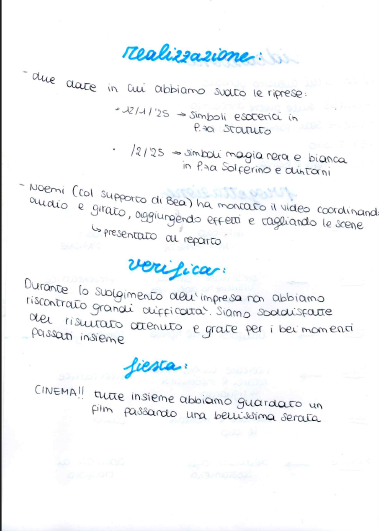 realizzazione:
- due date in cui abbiamo svolto le riprese:
• 12/1/'25 → simboli esoterici in
P.za Statuto
• /2/'25 → simboli magia nera e bianca
in P.za Solferino e dintorni
- Noemi (col supporto di Bea) ha montato il video coordinando
audio e girato, aggiungendo effetti e tagliando le scene
↳ presentato al reparto
verifica:
Durante lo svolgimento dell'impresa non abbiamo
riscontrato grandi difficoltà. Siamo soddisfatte
del risultato ottenuto e grate per i bei momenti
passati insieme
fiesta:
CINEMA!! tutte insieme abbiamo guardato un
film passando una bellissima serata